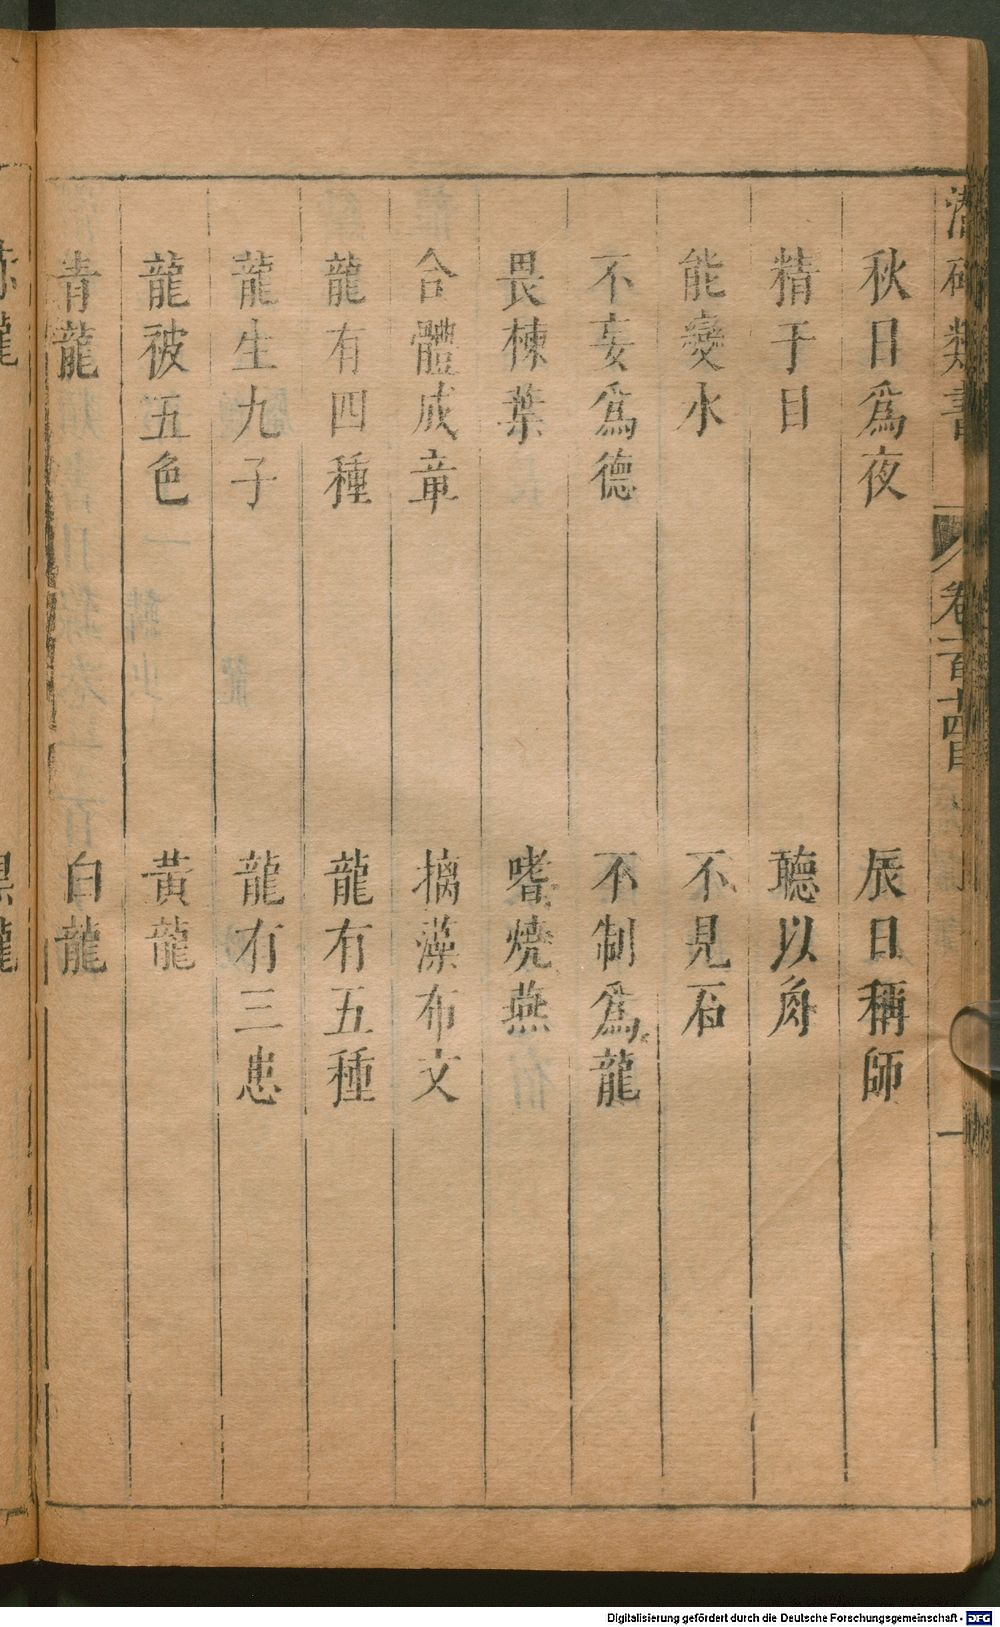 潛確類書 卷一百十四目 一
秋日爲夜 辰日稱師
精于目 聽以角
能變水 不見石
不妄爲德 不制爲龍
畏楝葉 嗜燒燕
合體成章 摛藻布文
龍有四種 龍有五種
龍生九子 龍有三患
龍被五色 黃龍
青龍 白龍
Digitalisierung gefördert durch die Deutsche Forschungsgemeinschaft - DFG